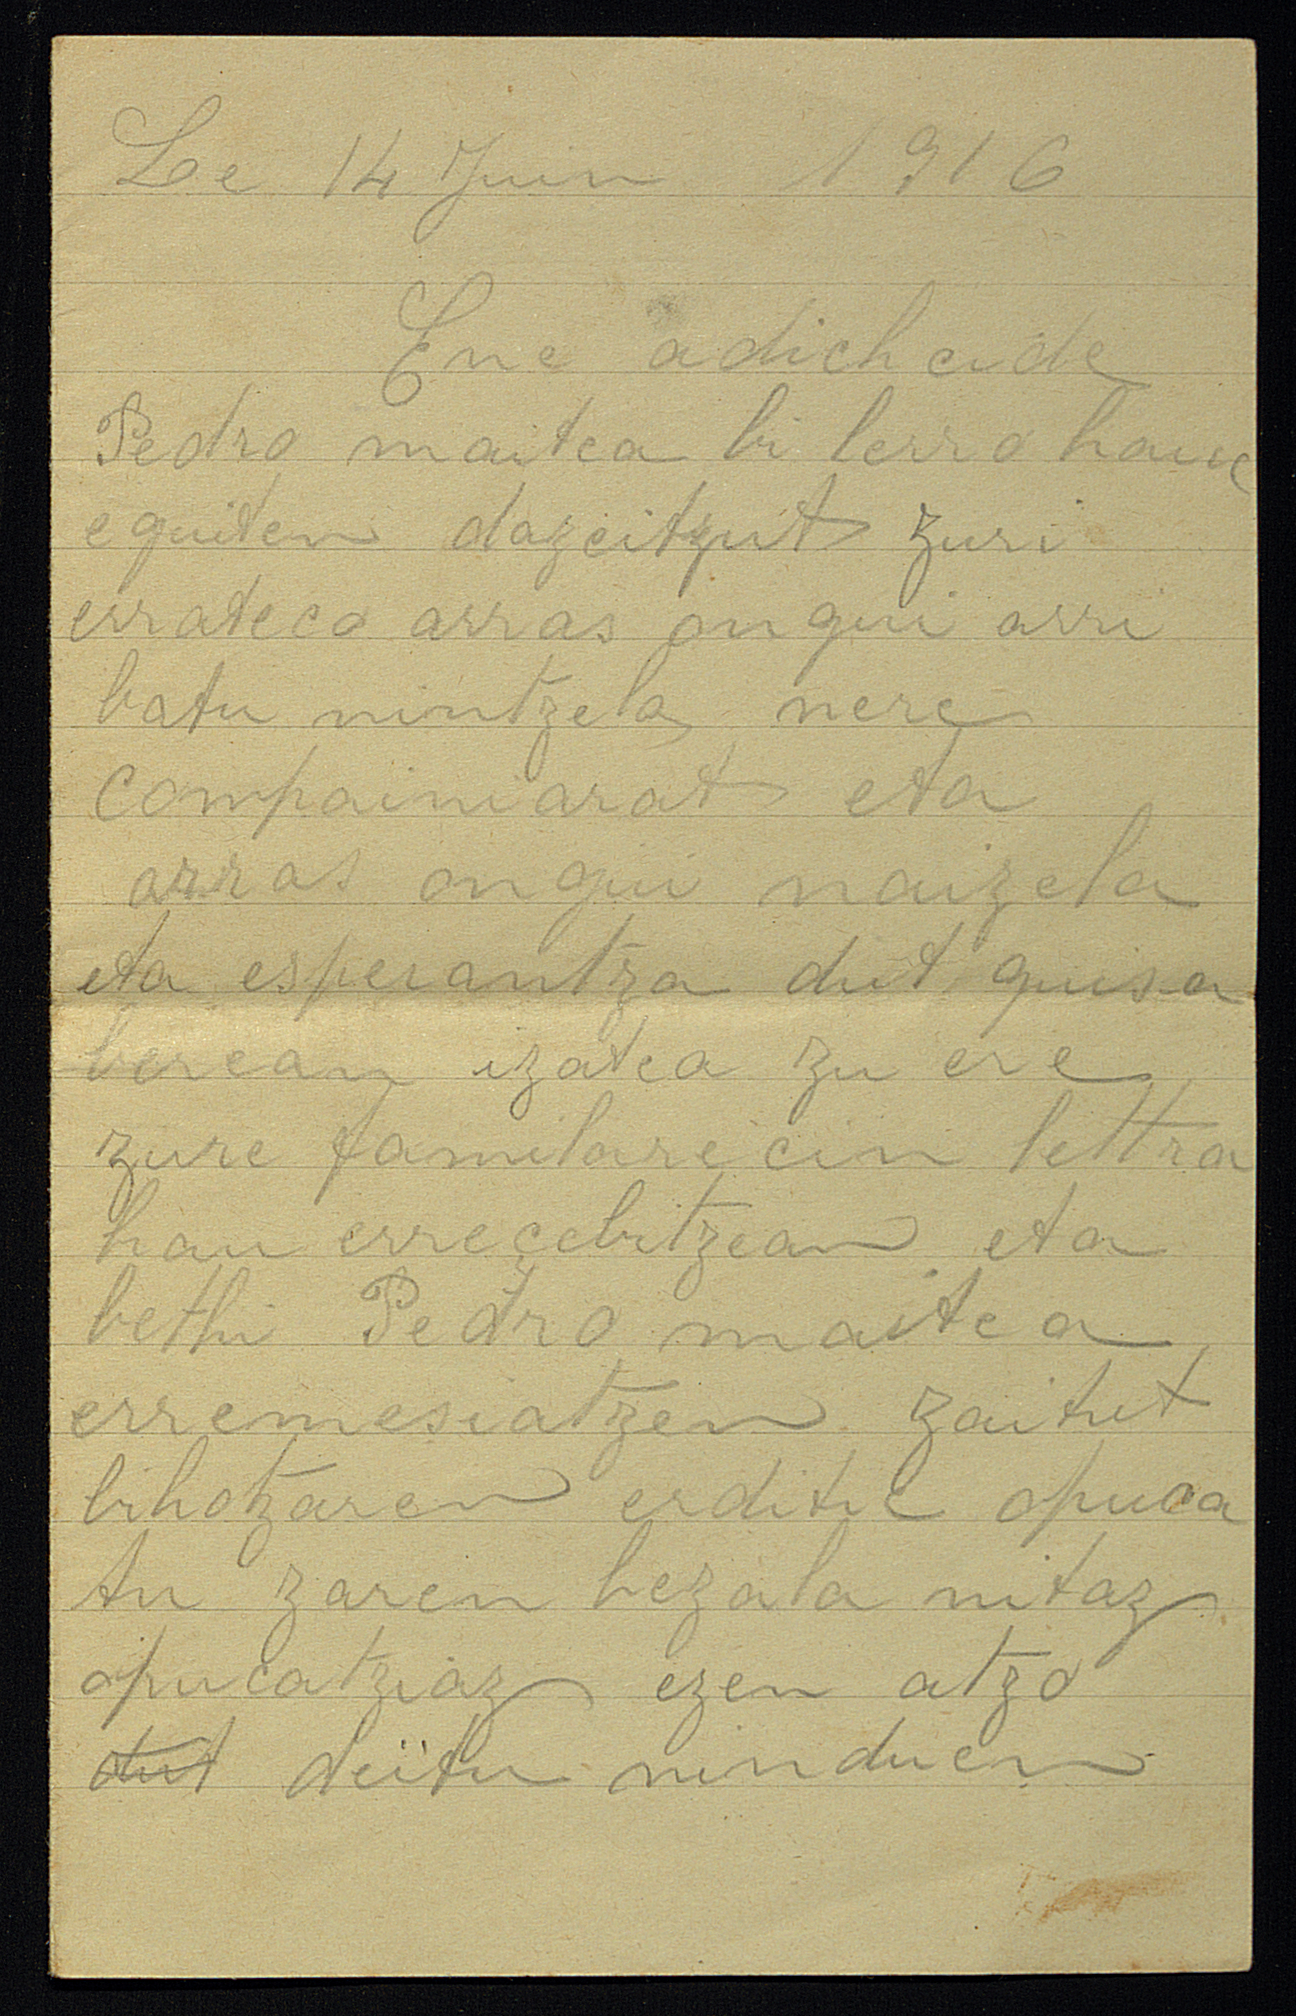 Le 14 Juin 1916
Ene adichcide
Pedro maitea bi lerro hauc
eguiten dazeitzut zuri
errateco arras ongui arri
batu nintzela nere
compainiarat eta
arras ongui naizela
eta esperantza dut guisa
berean izatea zu ere
zure familarecin lettra
hau erreçebitzean eta
bethi Pedro maitea
erremesiatzen zaitut
bihotzaren erditic opuca
tu zaren bezala nitaz
opucatziaz ezen atzo
dut deïtu ninduen